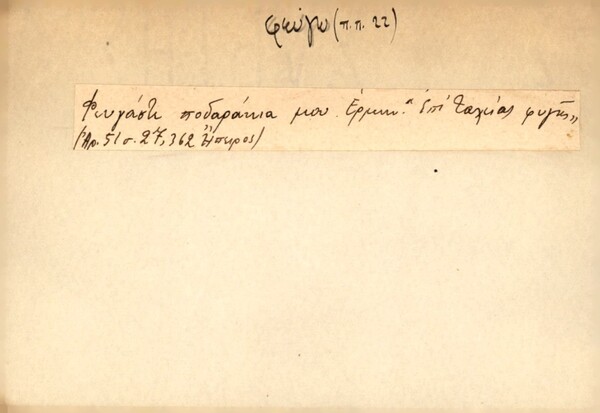 φεύγω (π.π. 22)
Φευγάστε ποδαράκια μου. Ερμην. "ἐπί ταχείας φυγῆς,,
(Αρ. 51 σ. 27, 362 Ἤπειρος)